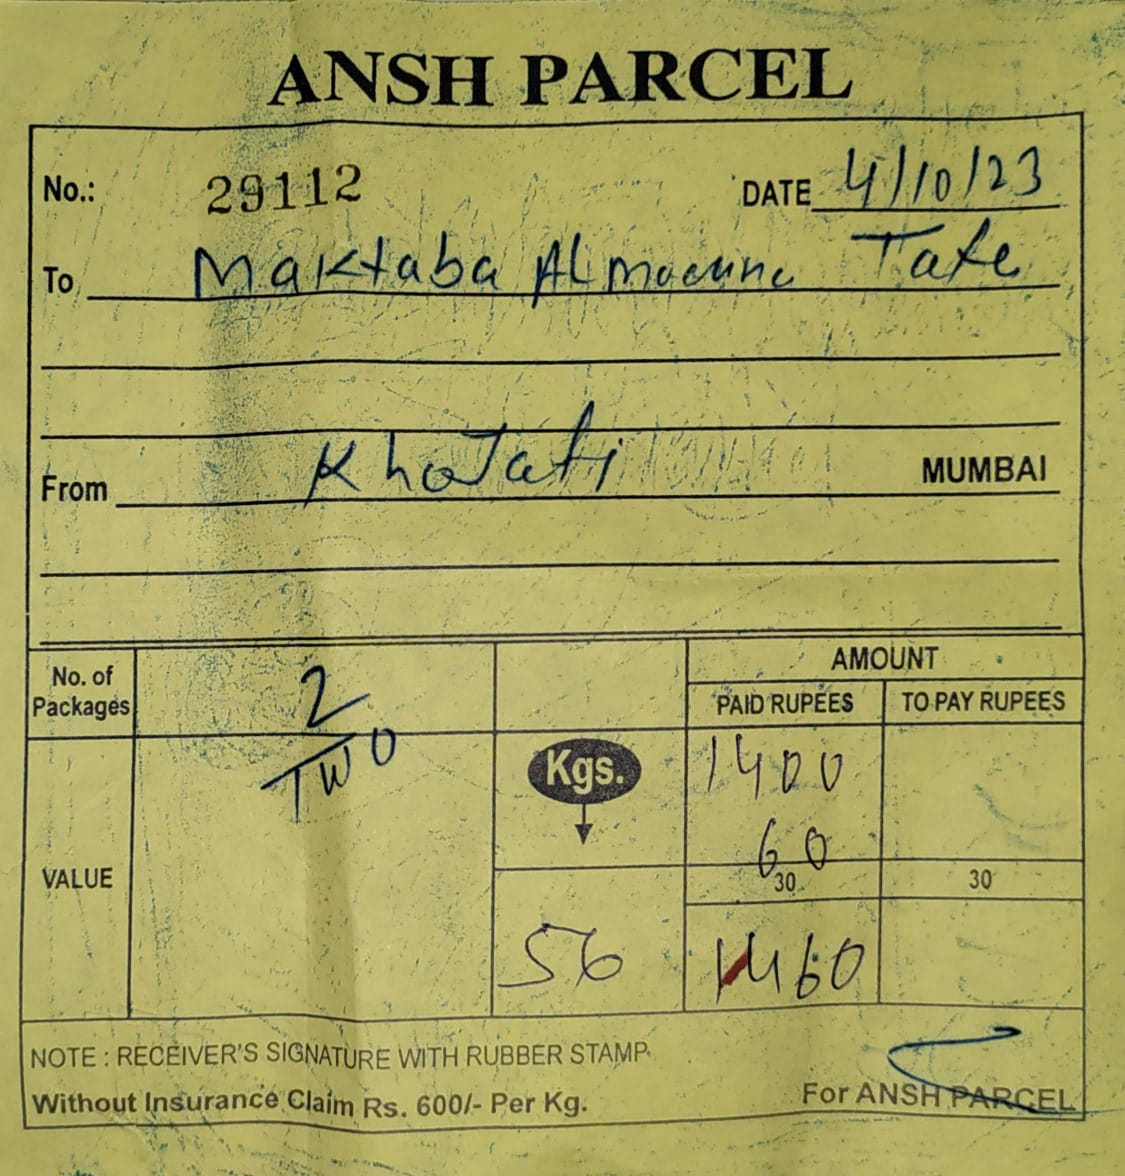 ANSH PARCEL
No.: 29112 DATE 4/10/23
To Maktaba Al Tate
From Khojati MUMBAI
No. of Packages 2 TWO
AMOUNT
PAID RUPEES TO PAY RUPEES
Kgs. 1400
60
VALUE 30 30
56 1460
NOTE : RECEIVER'S SIGNATURE WITH RUBBER STAMP
Without Insurance Claim Rs. 600/- Per Kg. For ANSH PARCEL